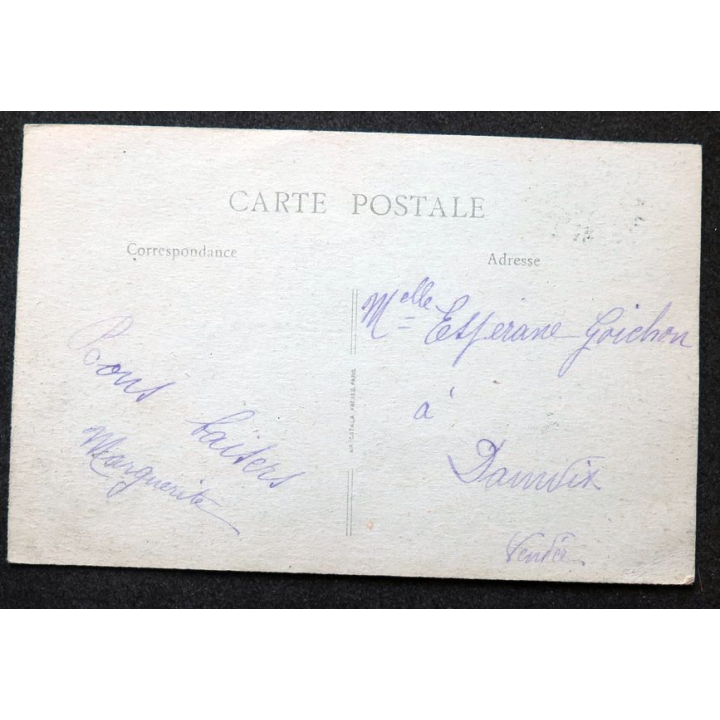 CARTE POSTALE
Correspondance
Adresse
Bons baisers
Marguerite
Melle Esperane Goichon
à
Damvix
Vendée
CATALA FRÈRES, PARIS